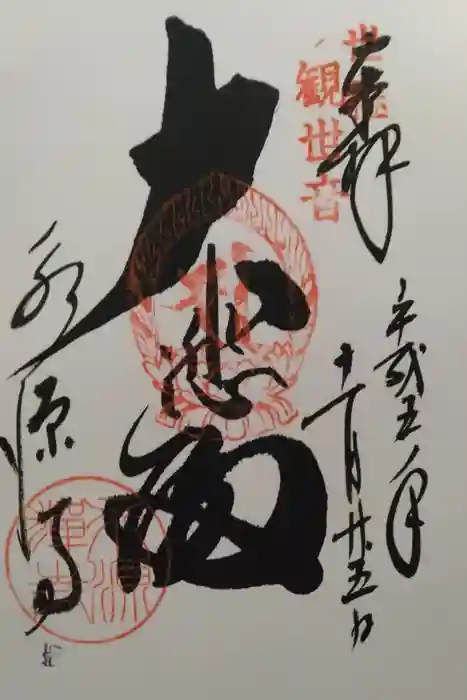 奉拝
世継
観世音
平成五年
十一月廿五日
大悲殿
永源寺